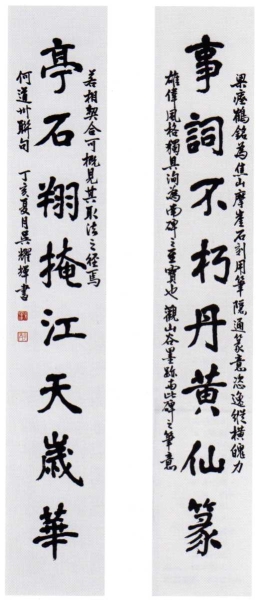 梁瘞鶴銘為焦山摩崖石刻用筆隱通篆意恣逸縱橫魄力
事詞不朽丹黃仙篆
雄偉風格獨具洵為南碑之至寶也觀山谷墨跡与此碑之筆意
若相契合可概見其取法之經焉
亭石翔掩江天歲華
何道州聯句 丁亥夏月吳耀輝書